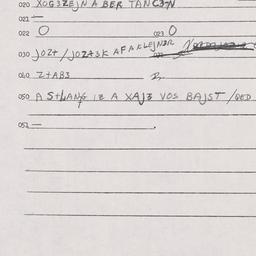 020 XOG3ZEJN A BER TANC3N
021 —
022 O 023 O
030 JOZT / JOZT3K AFAKLEJN3R
040 Z+AB3
050 A S+LANG IZ A XAJ3 VOS BAJST / QED
051 —